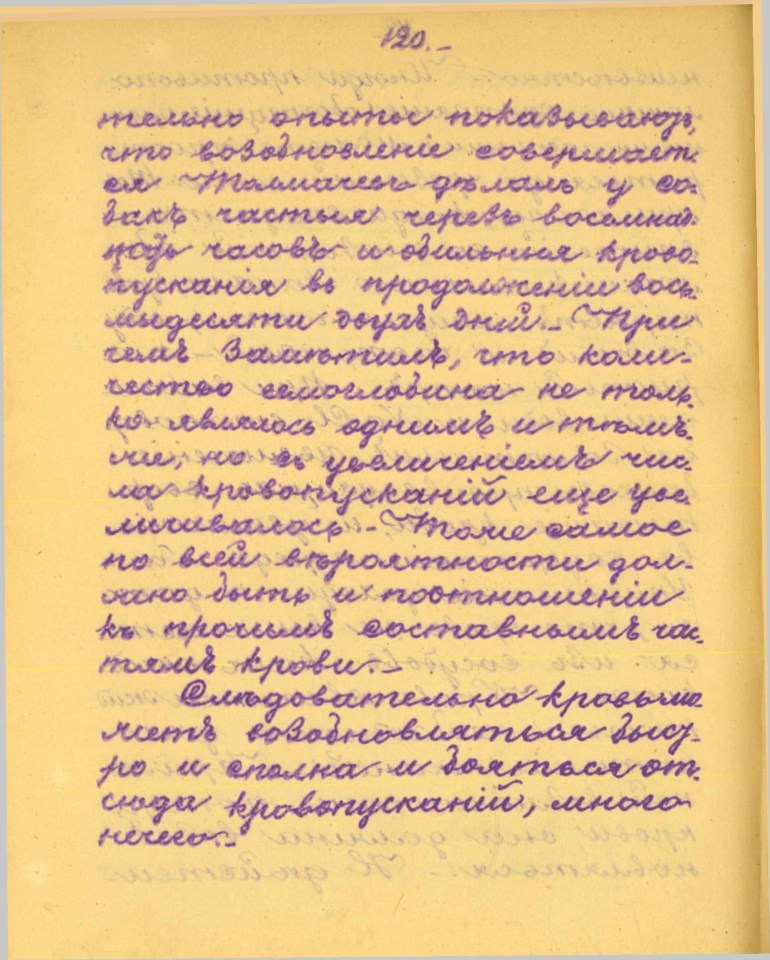 120.-
тельно опыты показываютъ,
что возобновленіе совершает-
ся Толмачевъ дѣлалъ у со-
бакъ частыя черезъ восемнад-
цать часовъ и обильныя крово-
пусканія въ продолженіи вось-
мыдесяти двухъ дней.- При
чемъ замѣтилъ, что коли-
чество гемоглобина не толь-
ко являлось однимъ и тѣмъ-
же, но съ увеличеніемъ чис-
ла кровопусканій еще уве-
личивалось.- Тоже самое
по всей вѣроятности дол-
жно быть и поотношеніи
къ прочимъ составнымъ час-
тямъ крови.-
Слѣдовательно кровь мо-
жетъ возобновляться быст-
ро и сполна и бояться от-
сюда кровопусканій, много
нечего.-